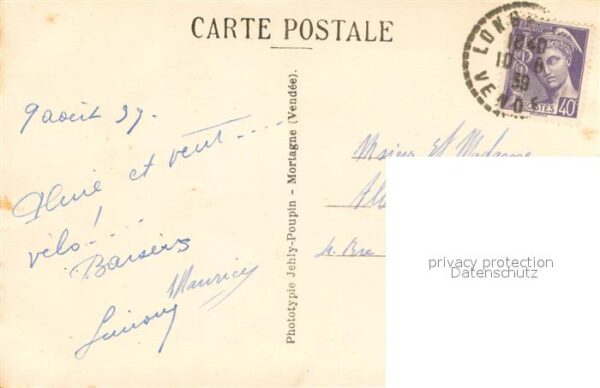 CARTE POSTALE
9 août 39.
Pluie et vent....
vélo!....
Baisers
Maurice
Phototypie Jehly-Poupin - Mortagne (Vendée).
LONG
18 40
10 - 8
39
VEND
POSTES 40
et Madame
privacy protection
Datenschutz